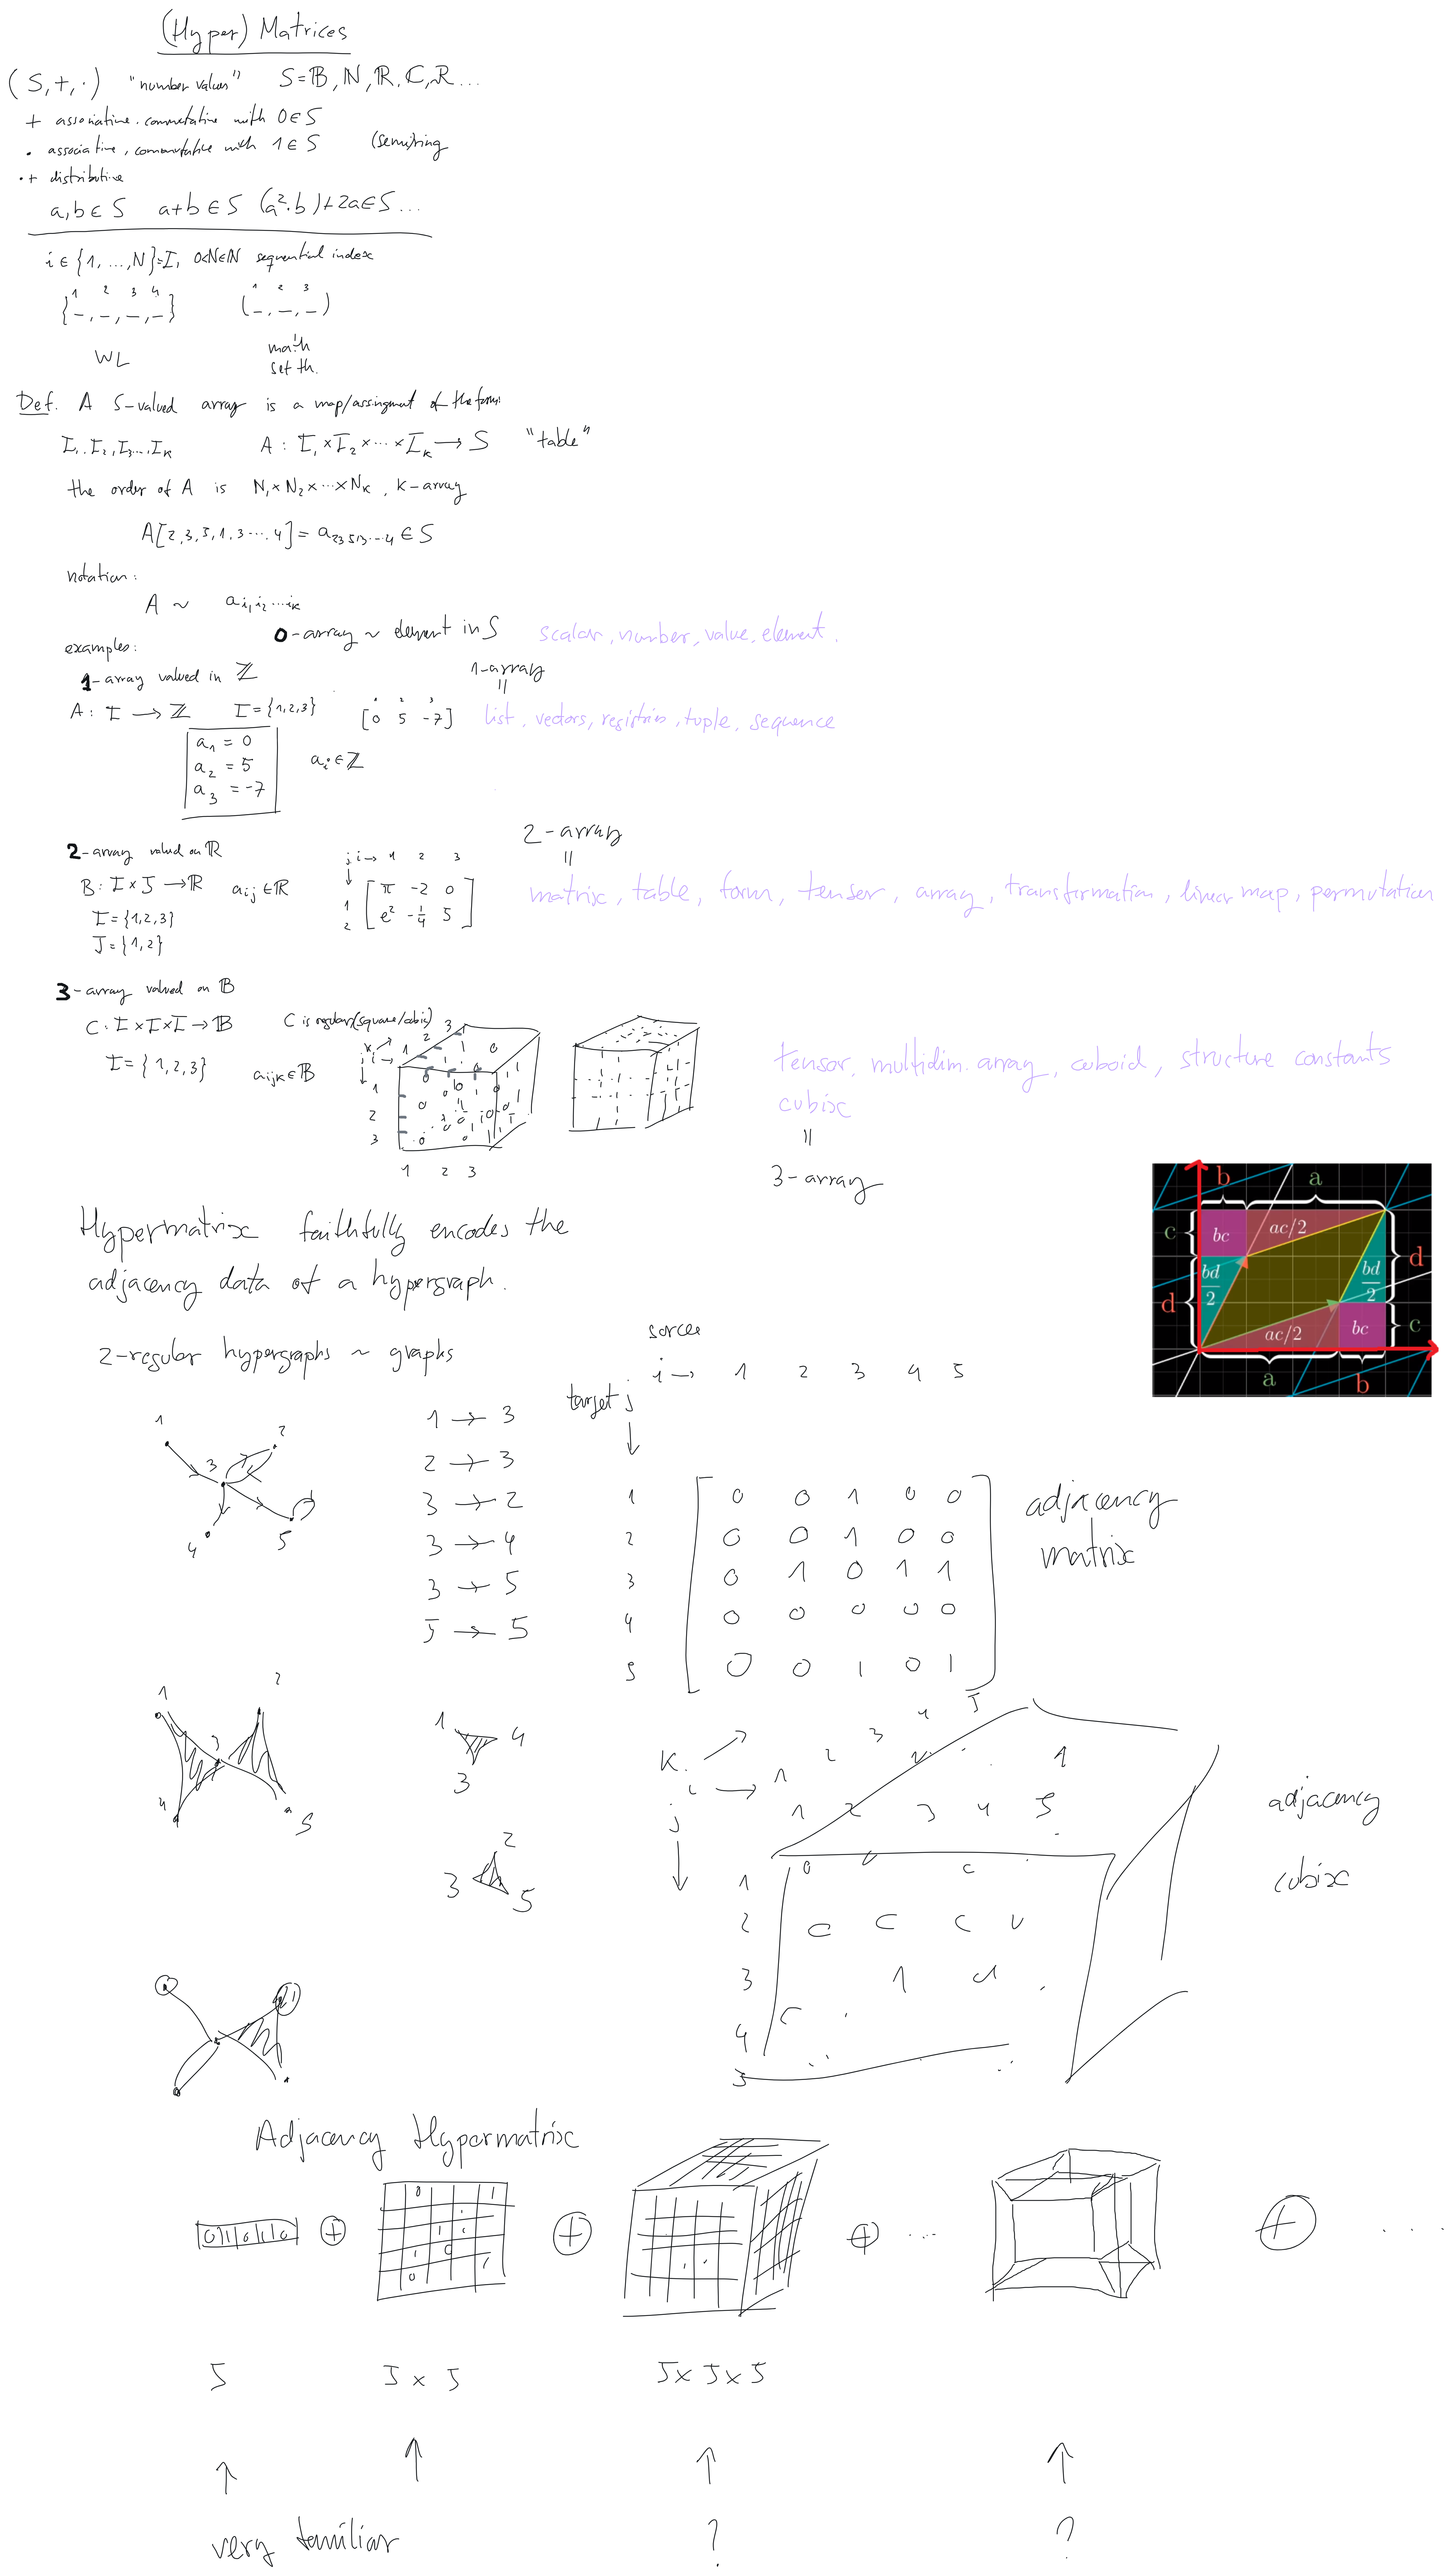 (Hyper) Matrices
(S, +, ·) "number values" S = 𝔹, ℕ, ℝ, ℂ, R ...
+ associative, commutative with 0 ∈ S
· associative, commutative with 1 ∈ S (semi)ring
·+ distributive
a, b ∈ S a+b ∈ S (a²·b)+2a ∈ S ...
i ∈ {1, ..., N} = I, 0<N∈ℕ sequential index
1 2 3 4 1 2 3
{_, _, _, _} (_, _, _)
WL math
set th.
Def. A S-valued array is a map/assingment of the form:
I₁, I₂, I₃..., I_K A : I₁ × I₂ × ··· × I_K → S "table"
the order of A is N₁ × N₂ × ··· × N_K, K-array
A[2,3,5,1,3 ···, 4] = a₂₃₅₁₃...₄ ∈ S
notation:
A ~ a_{i₁ i₂ ... i_K}
0-array ~ element in S scalar, number, value, element.
examples:
1-array valued in ℤ 1-array
=
A : I → ℤ I = {1,2,3} [0 5 -7] list, vectors, registries, tuple, sequence
1 2 3
a₁ = 0
a₂ = 5 a_i ∈ ℤ
a₃ = -7
2-array
=
2-array valued on ℝ j i → 1 2 3
B : I × J → ℝ a_ij ∈ ℝ ↓ π -2 0 matrix, table, form, tensor, array, transformation, linear map, permutation
I = {1,2,3} 1 e² -1/4 5
J = {1,2} 2
3-array valued on 𝔹
C : I × I × I → 𝔹 C is regular (square/cubic)
I = {1,2,3} a_ijk ∈ 𝔹
K i → 1 2 3
j
1
2
3
1 2 3
tensor, multidim. array, cuboid, structure constants
cubix
=
3-array
b a
c bc ac/2
bd/2 bd/2 d
d ac/2 bc c
a b
Hypermatrix faithfully encodes the
adjacency data of a hypergraph.
2-regular hypergraphs ~ graphs
sorce
i → 1 2 3 4 5
target j
↓
1 2 3 4 5
1 → 3
2 → 3
3 → 2
3 → 4
3 → 5
5 → 5
1 0 0 1 0 0
2 0 0 1 0 0
3 0 1 0 1 1
4 0 0 0 0 0
5 0 0 1 0 1
adjacency
matrix
1 2 3 4 5
1 4 3
2 3 5
K
i → 1 2 3 4 5
j 1 2 3 4 5
↓
1
2
3
4
5
adjacency
cubix
Adjacency Hypermatrix
⊕ ⊕ ⊕ ... ⊕ ....
5 5 × 5 5 × 5 × 5
↑ ↑ ↑ ↑
very familiar ? ?